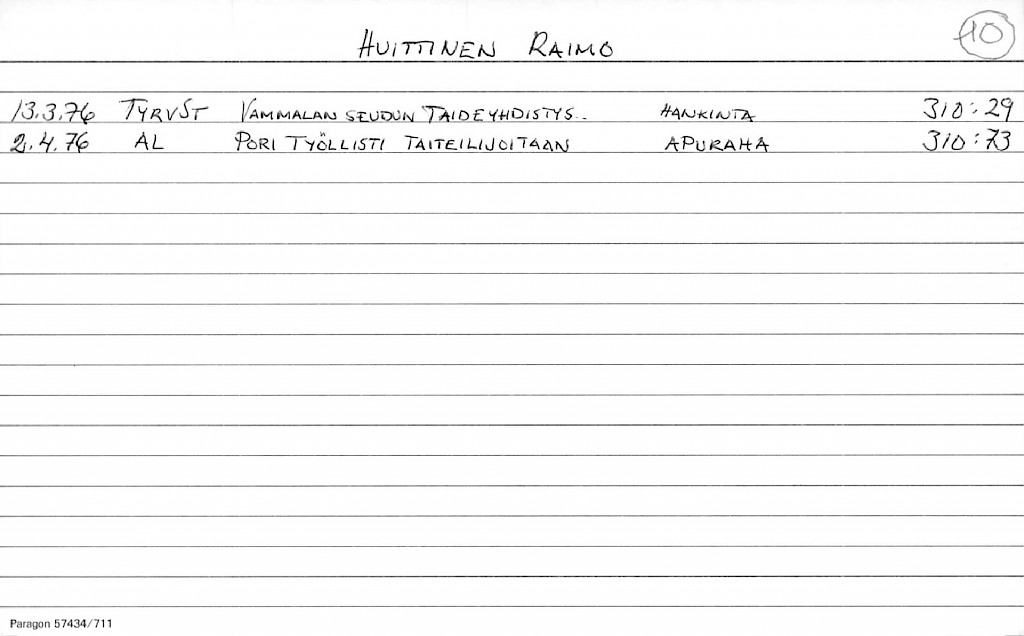 HUITTINEN RAIMO
10
13.3.76 TYRVST VAMMALAN SEUDUN TAIDEYHDISTYS.. HANKINTA 310:29
2.4.76 AL PORI TYÖLLISTI TAITEILIJOITAAN APURAHA 310:73
Paragon 57434/711